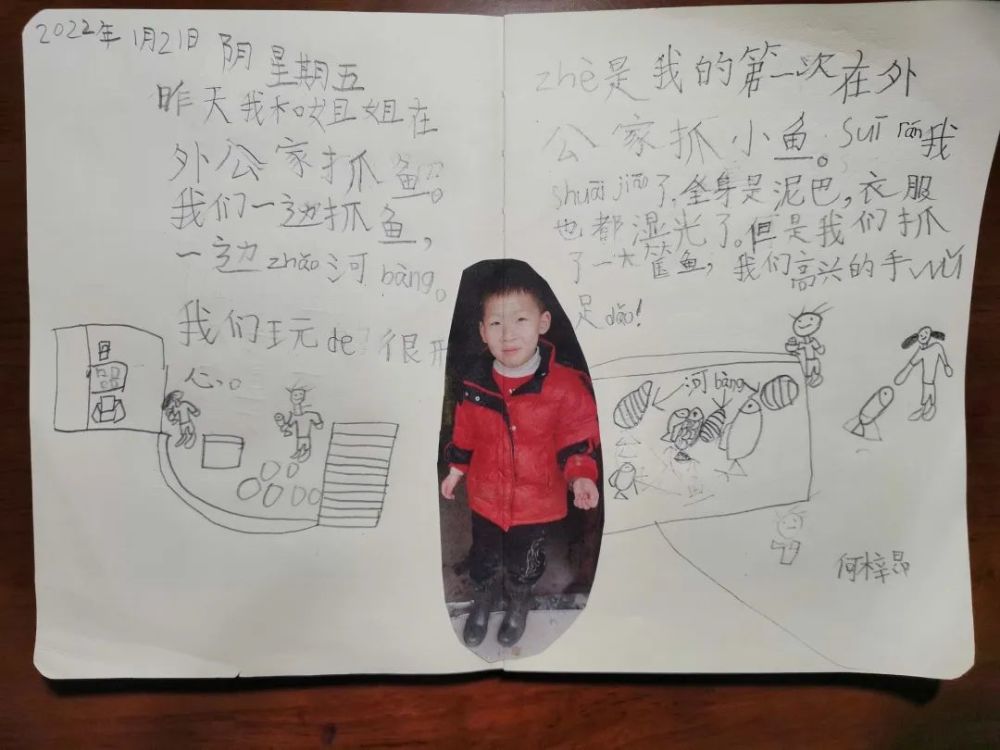 2022年1月21日 阴 星期五
昨天我和姐姐在
外公家抓鱼。
我们一边抓鱼，
一边zhǎo河bàng。
我们玩de很开
心。
zhè是我的第一次在外
公家抓小鱼。Suī rán我
shuāi jiāo了，全身是泥巴，衣服
也都湿光了。但是我们抓
了一大筐鱼，我们高兴的手wǔ
足dǎo！
河bàng
何梓昂